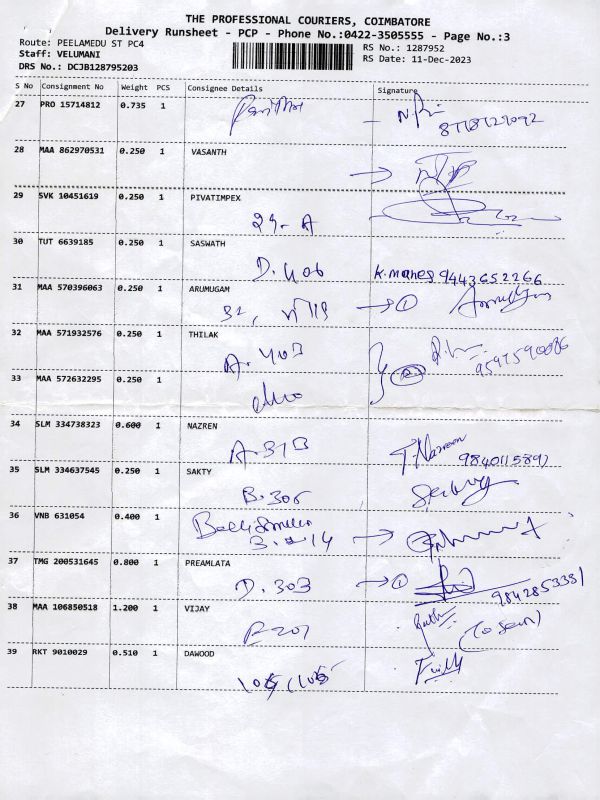 THE PROFESSIONAL COURIERS, COIMBATORE
Delivery Runsheet - PCP - Phone No.:0422-3505555 - Page No.:3
Route: PEELAMEDU ST PC4
RS No.: 1287952
Staff: VELUMANI
RS Date: 11-Dec-2023
DRS No.: DCJB128795203
S No Consignment No Weight PCS Consignee Details Signature
27 PRO 15714812 0.735 1
28 MAA 862970531 0.250 1 VASANTH
29 SVK 10451619 0.250 1 PIVATIMPEX
29-A
30 TUT 6639185 0.250 1 SASWATH
D.406 K.manes 9443652266
31 MAA 570396063 0.250 1 ARUMUGAM
1
32 MAA 571932576 0.250 1 THILAK
A.403
33 MAA 572632295 0.250 1
34 SLM 334738323 0.600 1 NAZREN
A.313 T.Nazreen
35 SLM 334637545 0.250 1 SAKTY
B.305
36 VNB 631054 0.400 1
37 TMG 200531645 0.800 1 PREAMLATA
D.303 1 9842853381
38 MAA 106850518 1.200 1 VIJAY
39 RKT 9010029 0.510 1 DAWOOD